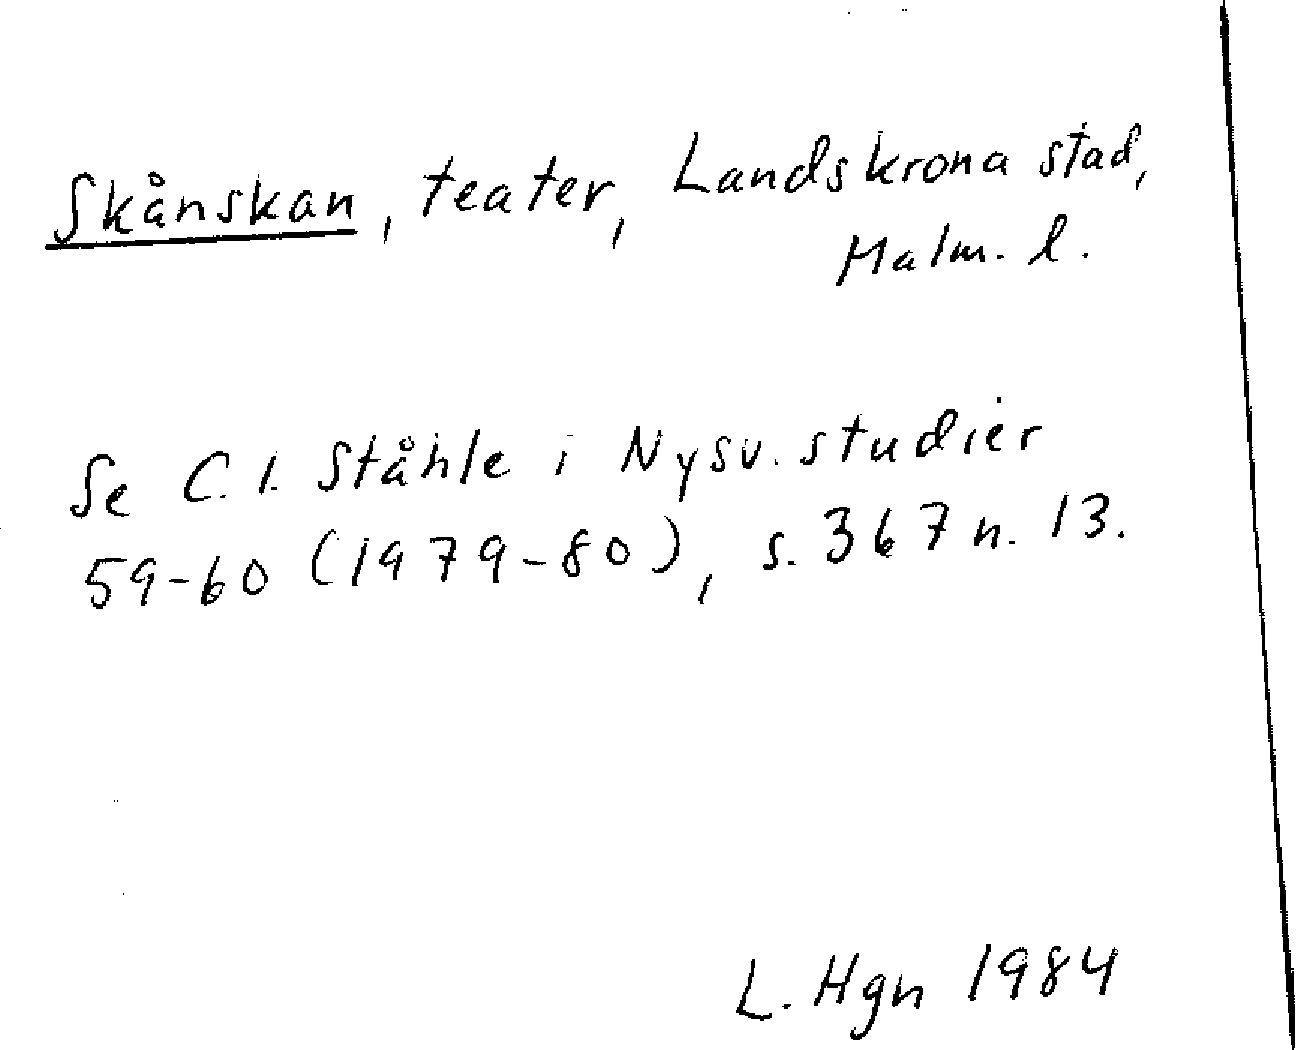 Skånskan, teater, Landskrona stad,
Malm. l.
Se C. I. Ståhle i Nysv. studier
59-60 (1979-80), s. 367 n. 13.
L. Hgn 1984